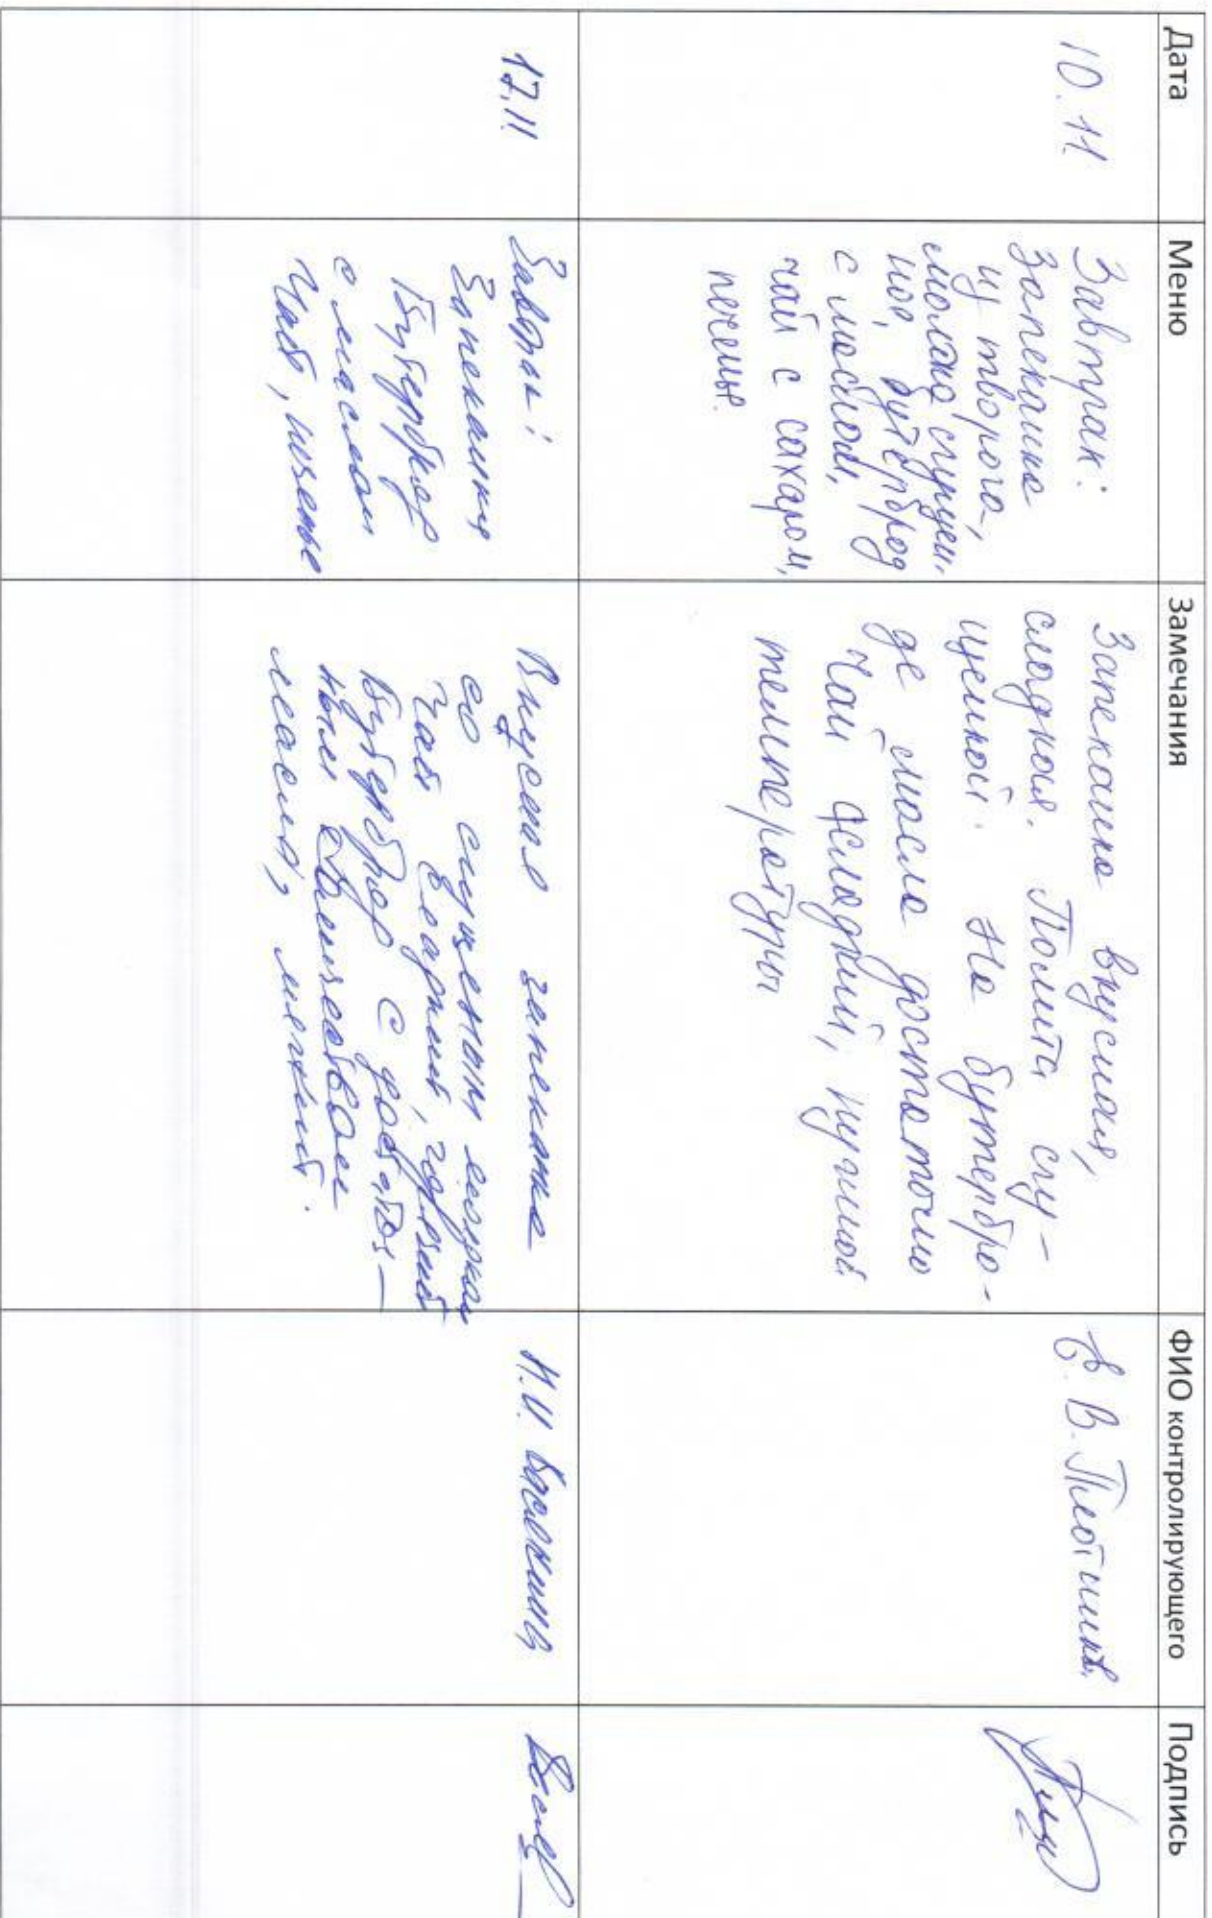 Дата Меню Замечания ФИО контролирующего Подпись
10.11.
Завтрак:
Запеканка
из творога,
молоко сгущен-
ное, бутерброд
с маслом,
чай с сахаром,
печенье.
Запеканка вкусная,
сладкая. Полита сгу-
щенкой. На бутербро-
де масла достаточно
Чай сладкий, нужной
температуры
Е.В. Плотника
17.11
Завтрак:
Запеканка
Бутерброд
с маслом
Чай, печенье
Вкусная запеканка
со сгущеным молоком
Чай сладкий, горячий
Бутерброд с достаточ-
ным количеством
масла, мягкий.
И.И. Васянина